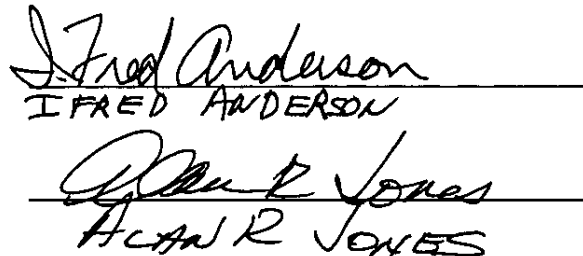 I. Fred Anderson
I FRED ANDERSON
Alan R Jones
ALAN R JONES